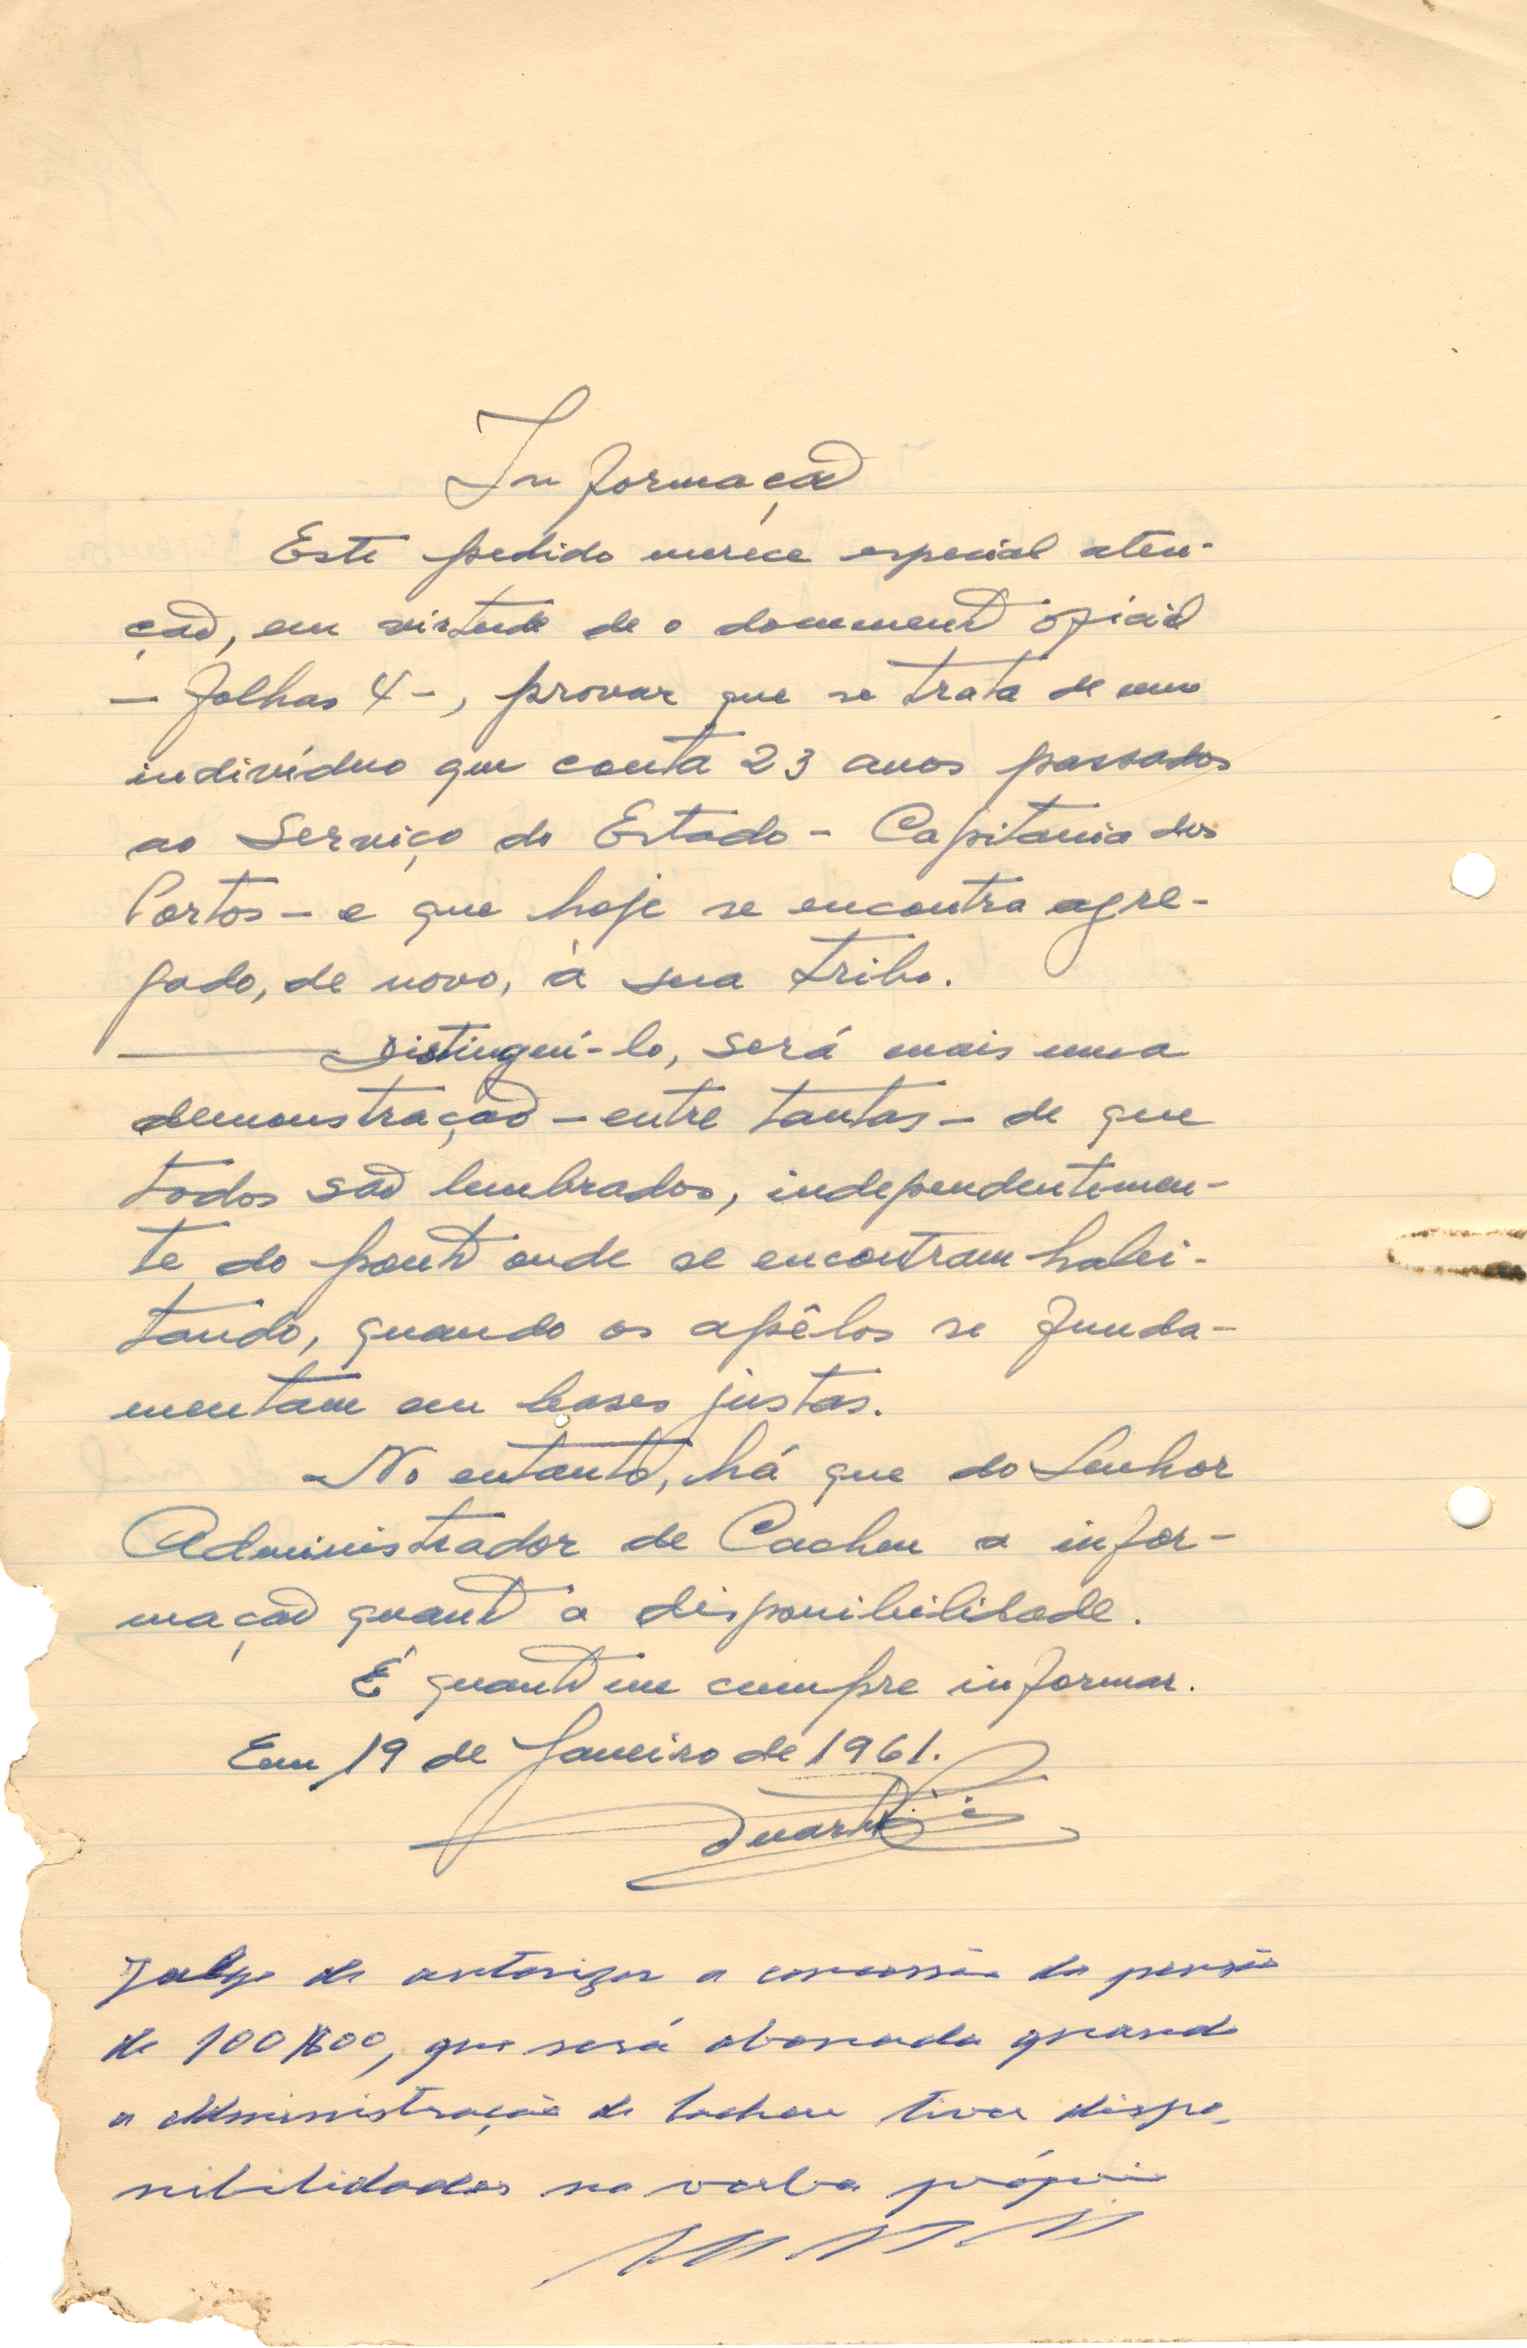 Informação
Este pedido merece especial aten-
ção, em virtude de o documento oficial
- folhas 4 -, provar que se trata de um
indivíduo que conta 23 anos passados
ao Serviço do Estado - Capitania dos
Portos - e que hoje se encontra agre-
gado, de novo, à sua tribo.
Distingui-lo, será mais uma
demonstração - entre tantas - de que
todos são lembrados, independentemen-
te do ponto onde se encontram habi-
tando, quando os apêlos se funda-
mentam em bases justas.
No entanto, há que do Senhor
Administrador de Cacheu a infor-
mação quanto a disponibilidade.
É quanto me cumpre informar.
Em 19 de Janeiro de 1961.
Duarte
Julgo de autorizar a concessão da pensão
de 100$00, que será abonada quando
a administração de Cacheu tiver dispo-
nibilidades na verba própria